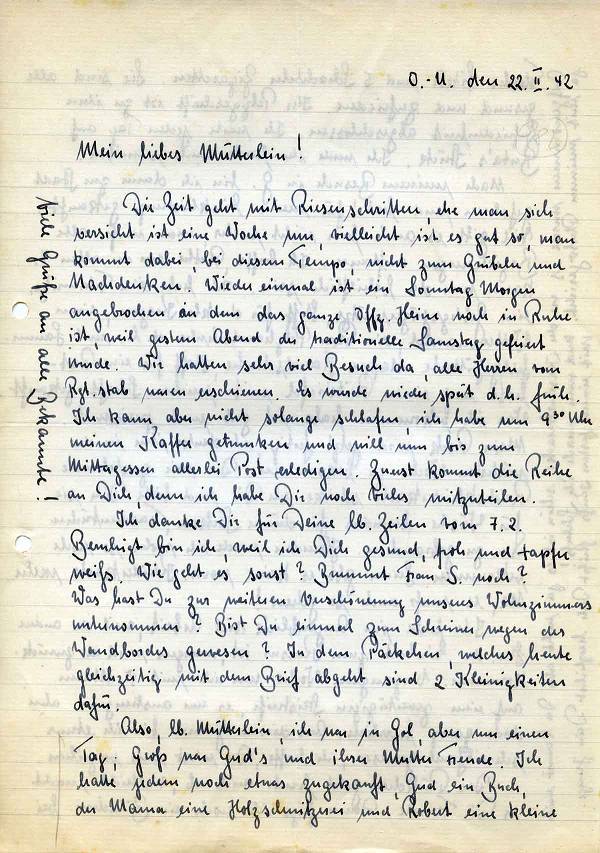 O.-U. den 22. II. 42
Mein liebes Mütterlein!
Die Zeit geht mit Riesenschritten, ehe man sich
versieht ist eine Woche um, vielleicht ist es gut so, man
kommt dabei, bei diesem Tempo, nicht zum Grübeln und
Nachdenken. Wieder einmal ist ein Sonntag Morgen
angebrochen an dem das ganze Offz. Heim noch in Ruhe
ist, weil gestern Abend der traditionelle Samstag gefeiert
wurde. Wir hatten sehr viel Besuch da, alle Herren vom
Rgt. stab waren erschienen. Es wurde wieder spät d. h. früh.
Ich kann aber nicht solange schlafen, ich habe um 9 30 Uhr
meinen Kaffee getrunken und will nun bis zum
Mittagessen allerlei Post erledigen. Zuerst kommt die Reihe
an Dich, denn ich habe Dir noch vieles mitzuteilen.
Ich danke Dir für Deine lb. Zeilen vom 7. 2.
Beruhigt bin ich, weil ich Dich gesund, froh und tapfer
weiß. Wie geht es sonst? Brummt Frau S. noch?
Was hast Du zur weiteren Verschönerung unseres Wohnzimmers
unternommen? Bist Du einmal zum Schreiner wegen des
Wandbordes gewesen? In dem Päckchen, welches heute
gleichzeitig mit dem Brief abgeht sind 2 Kleinigkeiten
dafür.
Also, lb. Mütterlein, ich war in Gol, aber nur einen
Tag; Groß war Gud's und ihrer Mutter Freude. Ich
hatte jedem noch etwas zugekauft, Gud ein Buch,
der Mama eine Holzschnitzerei und Robert eine kleine
Viele Grüße an alle Bekannte!